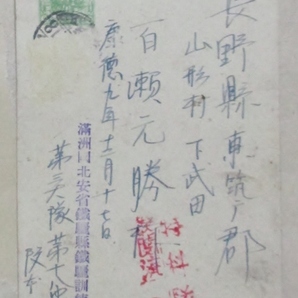 長野縣東筑戸郡
山形村下武田
百瀬元勝
康徳九年十二月十七日
滿洲國北安省鐵驪縣鐵驪訓
第三大隊第七中
阪本